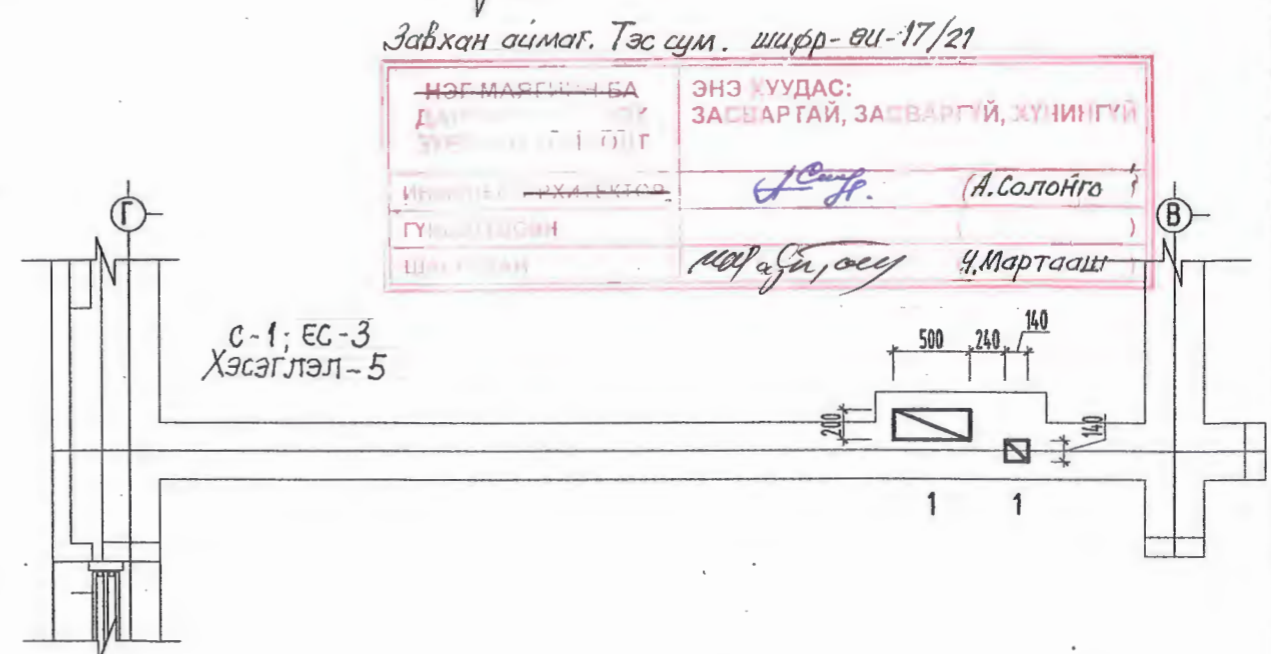 Завхан аймаг. Тэс сум. шифр-өи-17/21
НЭГ МАЯГИЙН БА
ЭНЭ ХУУДАС:
ЗАСВАРТАЙ, ЗАСВАРГҮЙ, ХҮЧИНГҮЙ
АРХИТЕКТОР
(А.Солонго)
( )
Ч.Мартааш
Г
В
С-1; ЕС-3
Хэсэглэл-5
500 240 140
200
140
1 1